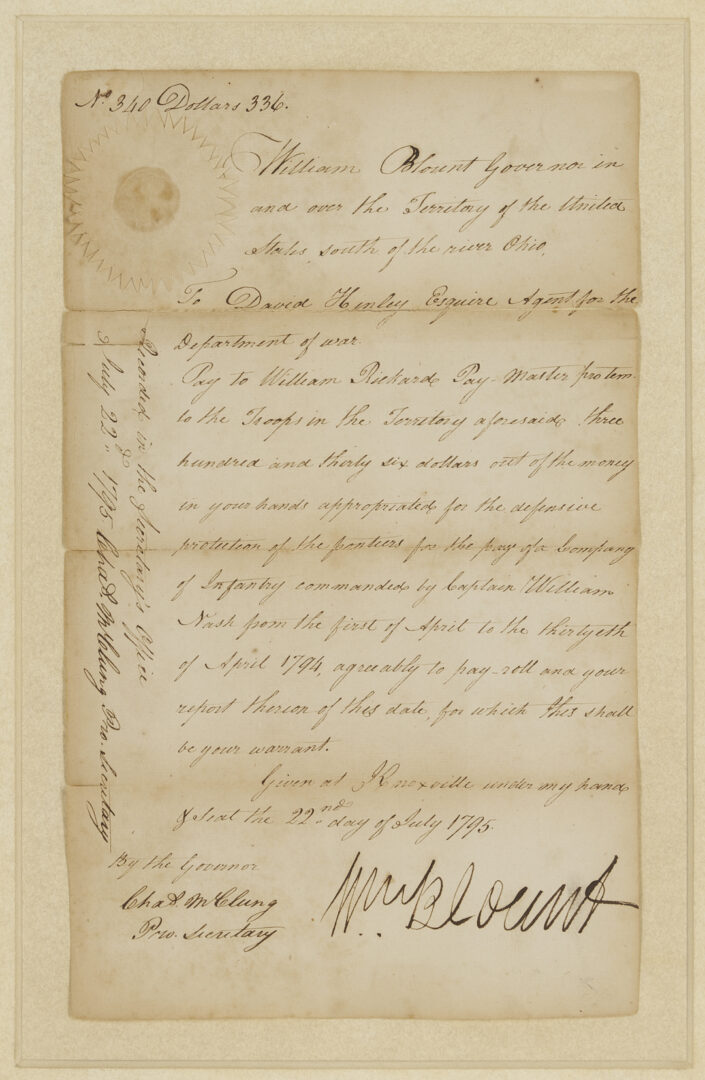 No 340 Dollars 336.
William Blount Governor in
and over the Territory of the United
States, south of the river Ohio,
To David Henley Esquire Agent for the
Department of war
Pay to William Rickard Pay-Master protem
to the Troops in the Territory aforesaid, three
hundred and thirty six dollars out of the money
in your hands appropriated for the defensive
protection of the frontiers for the pay of a Company
of Infantry commanded by Captain William
Nash from the first of April to the thirtyeth
of April 1794, agreeably to pay-roll and your
report thereon of this date, for which this shall
be your warrant.
Given at Knoxville under my hand
& seal the 22nd day of July 1795.
By the Governor
Chas. McClung
Pro. Secretary
Wm Blount
Recorded in the Secretary's Office
July 22d 1795 Chas. McClung Pro. Secretary